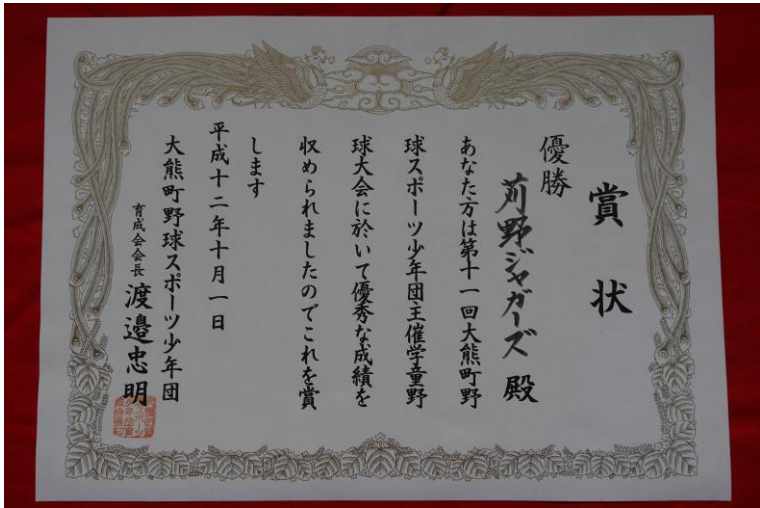 賞状
優勝
苅野ジャガーズ 殿
あなた方は第十一回大熊町野
球スポーツ少年団主催学童野
球大会に於いて優秀な成績を
収められましたのでこれを賞
します
平成十二年十月一日
大熊町野球スポーツ少年団
育成会会長 渡邉忠明